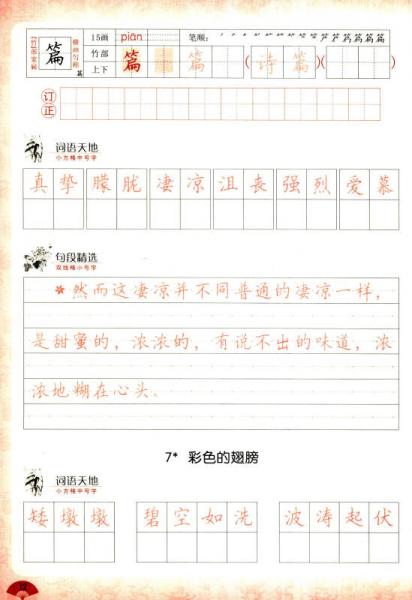 「竹部宽扁 篇 横画匀称 15画 piān 笔顺：
竹部 篇 篇 (诗 篇)( )
上下
订正
词语天地
小方格中号字
真挚 朦胧 凄凉 沮丧 强烈 爱慕
句段精选
双线格小号字
*然而这凄凉并不同普通的凄凉一样，
是甜蜜的，浓浓的，有说不出的味道，浓
浓地糊在心头。
7* 彩色的翅膀
词语天地
小方格中号字
矮墩墩 碧空如洗 波涛起伏